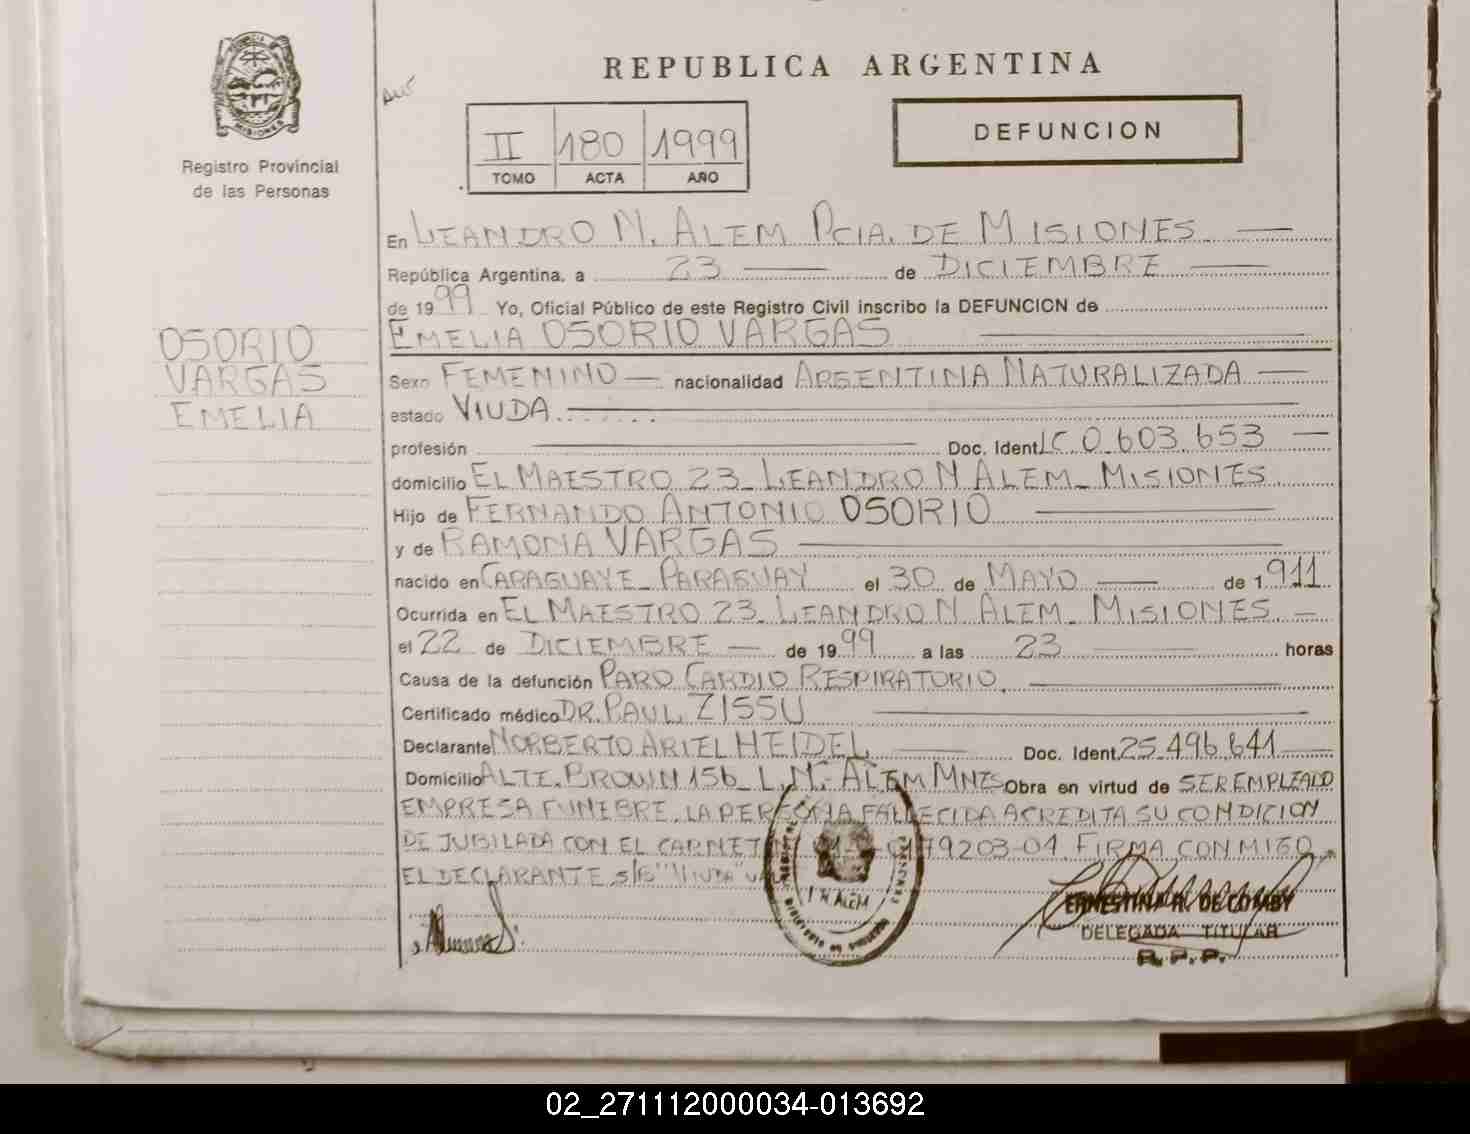 REPUBLICA ARGENTINA
II 180 1999
TOMO ACTA AÑO
DEFUNCION
MISIONES
Registro Provincial
de las Personas
OSORIO
VARGAS
EMELIA
En LEANDRO N. ALEM PCIA. DE MISIONES
República Argentina, a 23 de DICIEMBRE
de 1999 Yo, Oficial Público de este Registro Civil inscribo la DEFUNCION de
EMELIA OSORIO VARGAS
Sexo FEMENINO nacionalidad ARGENTINA NATURALIZADA
estado VIUDA
profesión Doc. Ident. LC 0.603.653
domicilio EL MAESTRO 23_ LEANDRO N ALEM_ MISIONES
Hijo de FERNANDO ANTONIO OSORIO
y de RAMONA VARGAS
nacido en CARAGUAYE_ PARAGUAY el 30 de MAYO de 1911
Ocurrida en EL MAESTRO 23_ LEANDRO N. ALEM_ MISIONES
el 22 de DICIEMBRE de 1999 a las 23 horas
Causa de la defunción PARO CARDIO RESPIRATORIO
Certificado médico DR. PAUL ZISSU
Declarante NORBERTO ARIEL HEIDEL Doc. Ident. 25.496.641
Domicilio ALTE. BROWN 156_ L.N. ALEM MNES Obra en virtud de SER EMPLEADO
EMPRESA FUNEBRE. LA PERSONA FALLECIDA ACREDITA SU CONDICION
DE JUBILADA CON EL CARNET 79203-01. FIRMA CONMIGO
EL DECLARANTE s/b "VIUDA"
ALEM
ERNESTINA R. DE COMBY
DELEGADA TITULAR
R.P.P.
02_271112000034-013692